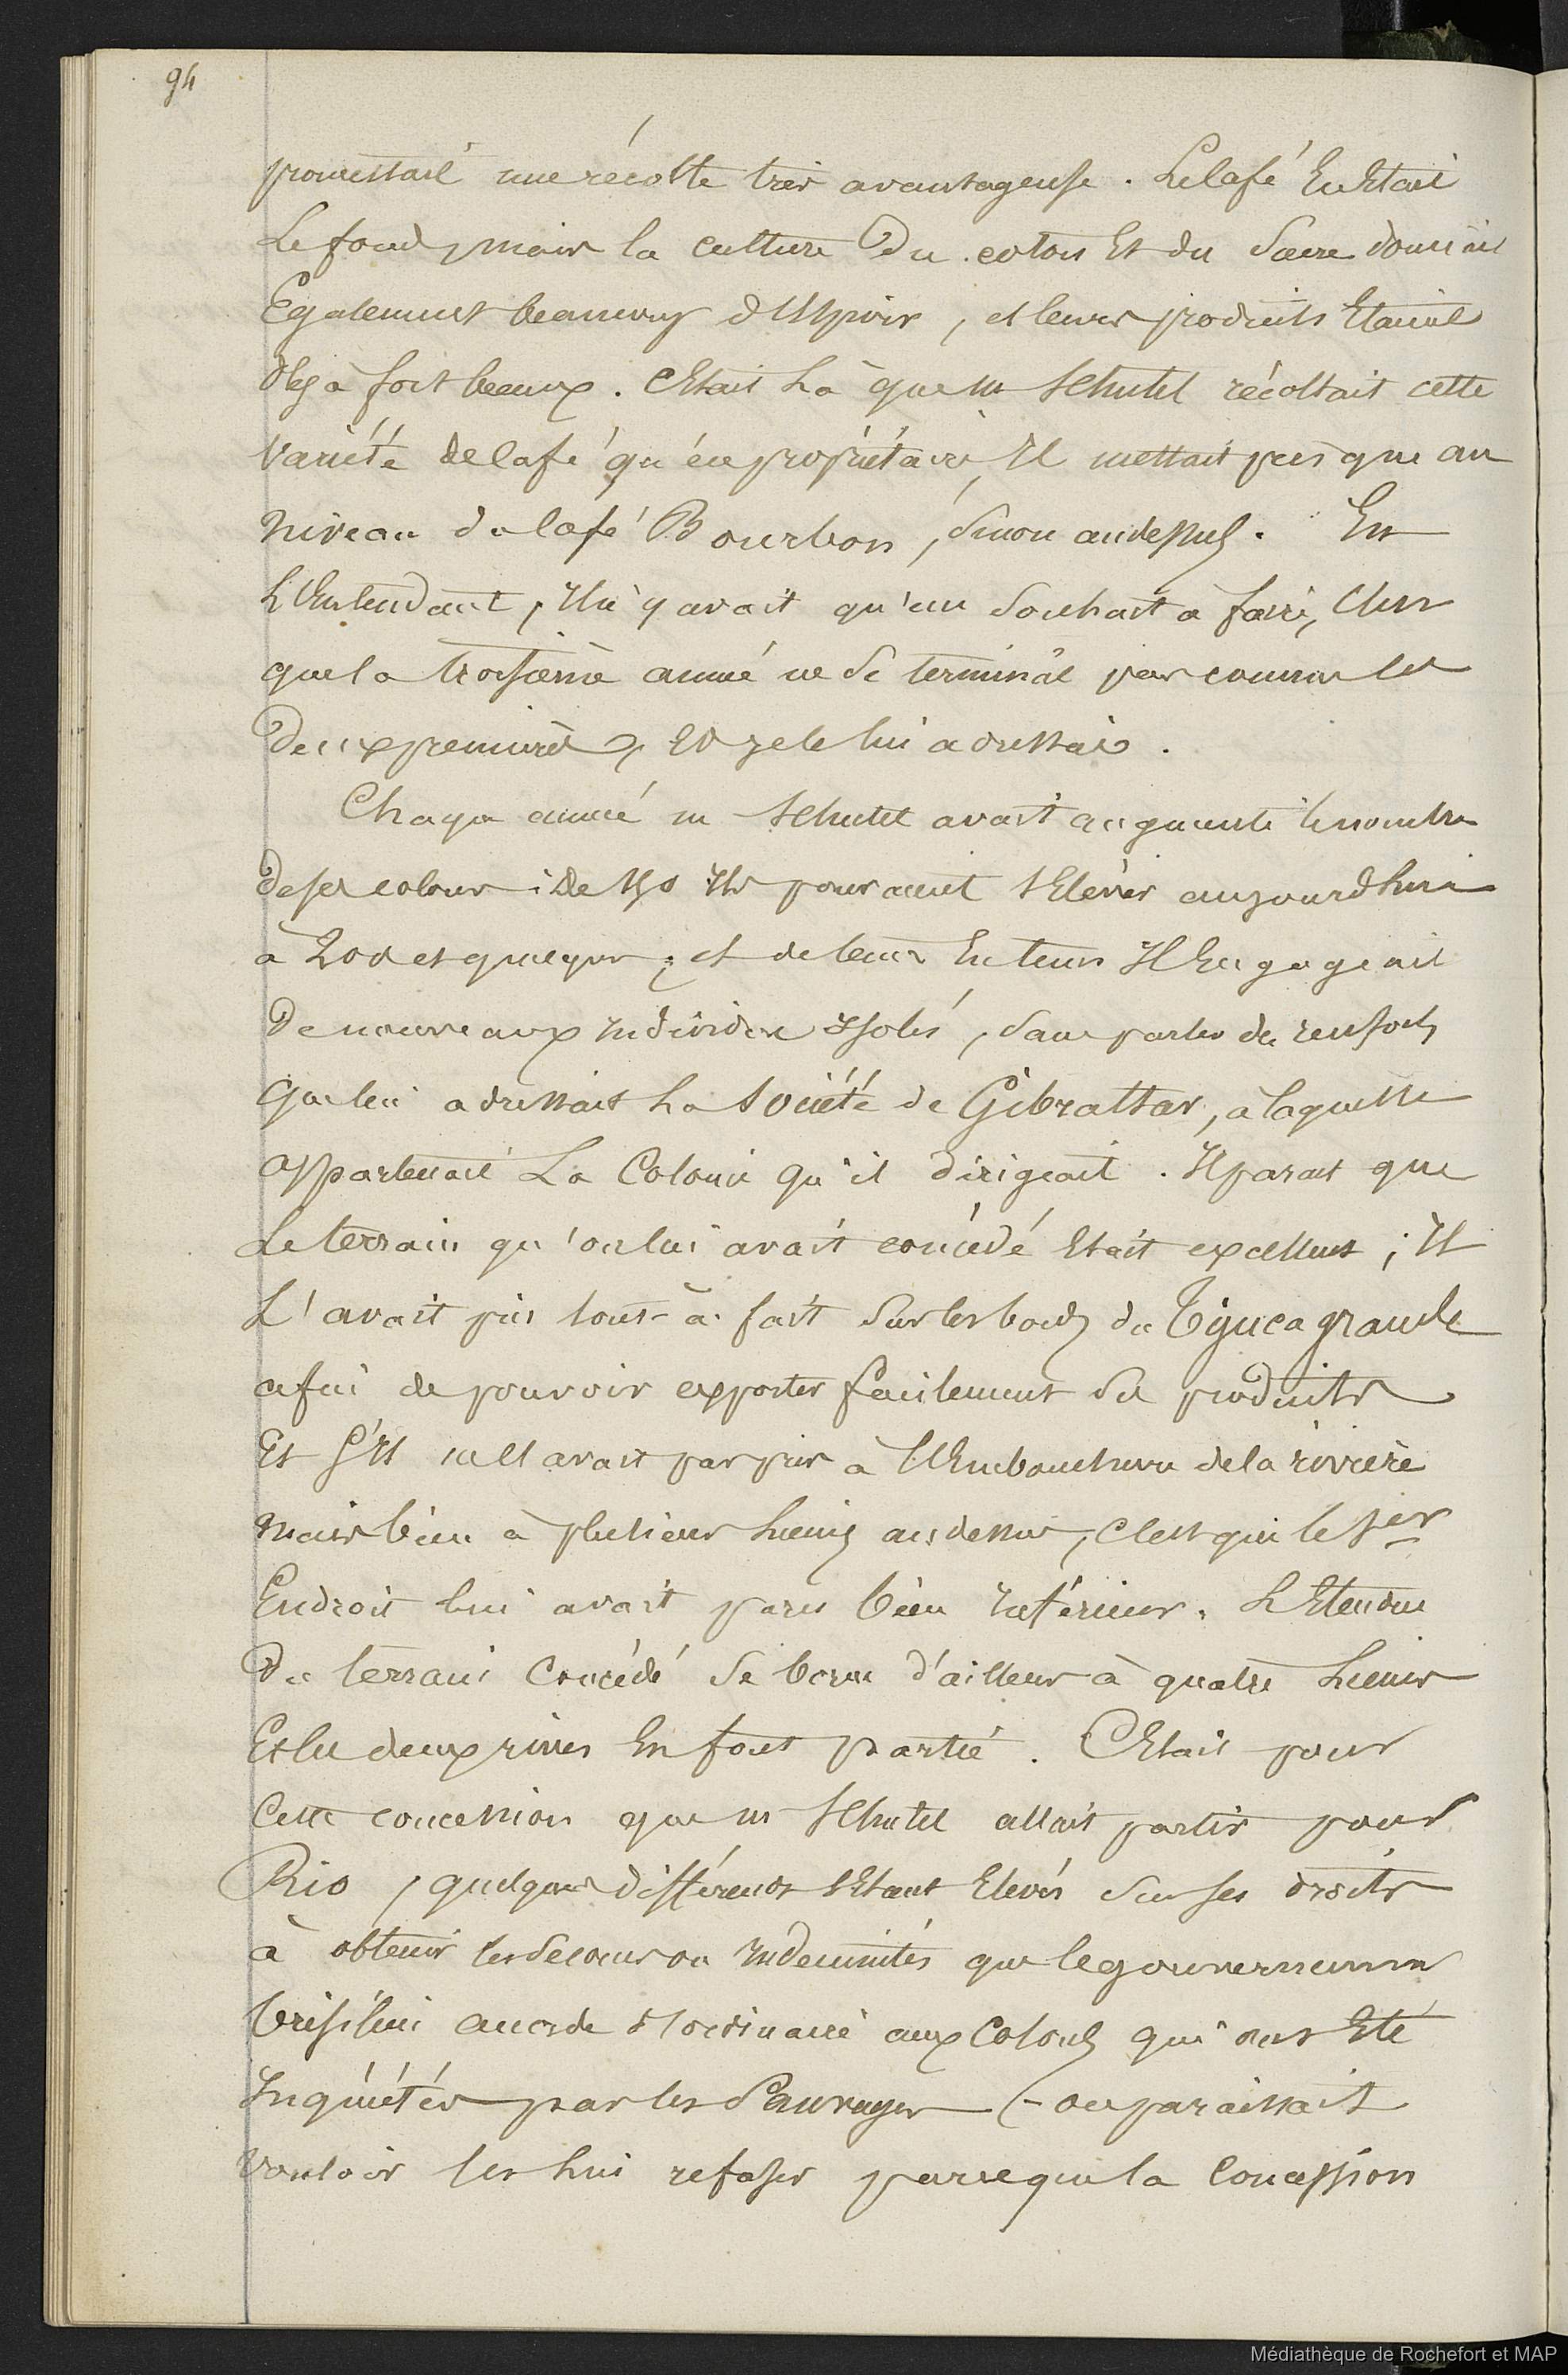 94
promettait une récolte très avantageuse. Le Café En Etait
Le fond, mais la culture Du coton Et du Sucre donnait
Egalement beaucoup d'Espoir, et leurs produits Etaient
déja fort beaux. C'Etait Là que m Schutel récoltait cette
Variété de Café qu'en propriétaire, Il mettait presque au
niveau du Café Bourbon, Sinon audessus. En
L'Entendant, Il n'y avait qu'un Souhait à faire, C'Est
que la troisième année ne Se terminât pas comme les
Deux premières, Et je le lui adressai.
Chaque année m Schutel avait augmenté le nombre
de ses colons ; De 150 Ils pouvaient s'Elever aujourd'hui
à 200 et quelques ; et de tems En tems Il Engageait
De nouveaux Individus Isolés, Sans parler des renforts
que lui adressait La Société de Gibraltar, à laquelle
appartenait La Colonie qu'il dirigeait. Il parait que
Le terrain qu'on lui avait concédé Etait excellent ; Il
L'avait pris tout-à-fait Sur les bords du Tijuca grande
afin de pouvoir exporter facilement Ses produits
Et S'Il ne l'avait pas pris à l'Embouchure de la rivière
mais bien à plusieurs Lieues au dessus, c'est que le 1er
Endroit lui avait paru bien Inférieur. L'Etendue
Du terrain Concédé Se borne d'ailleurs à quatre Lieues
Et les deux rives En font partie. C'Etait pour
Cette concession que m Schutel allait partir pour
Rio, quelques différends s'Etant Elevés Sur ses droits
à obtenir les Secours ou Indemnités que le gouvernement
brésilien accorde d'ordinaire aux Colons qui ont Eté
Inquiétés par les Sauvages (- on paraissait
Vouloir les Lui refuser parceque la Concession
Médiathèque de Rochefort et MAP